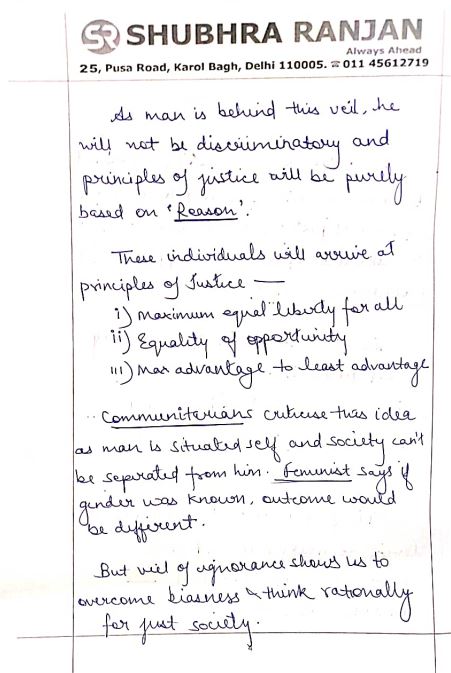 SR SHUBHRA RANJAN
Always Ahead
25, Pusa Road, Karol Bagh, Delhi 110005. ☎ 011 45612719
As man is behind this veil, he
will not be discriminatory and
principles of justice will be purely
based on 'Reason'.
These individuals will arrive at
principles of Justice —
i) Maximum equal liberty for all
ii) Equality of opportunity
iii) Max advantage to least advantage
Communitarians criticise this idea
as man is situated self and society can't
be seperated from him. Feminist says if
gender was known, outcome would
be different.
But veil of ignorance shows us to
overcome biasness & think rationally
for just society.